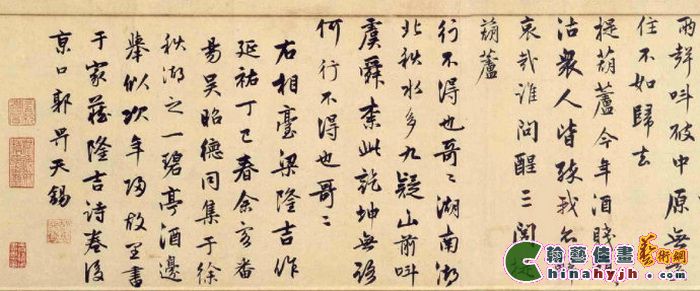 兩聲叫破中原無
住不如歸去
提葫蘆今年酒賤
沽衆人皆醉我
哀哉誰問醒三閭提
葫蘆
行不得也哥〻湖南湖
北秋水多九疑山前叫
虞舜奈此乾坤無路
何行不得也哥〻
右相臺梁隆吉作
延祐丁巳春余客番
昜吴昭德同集于徐
秋湖之一碧亭酒邊
舉似改年歸故里書
于家藏隆吉诗卷後
京口郭畀天錫
翰藝佳畫藝術網
Chinahyjh.com